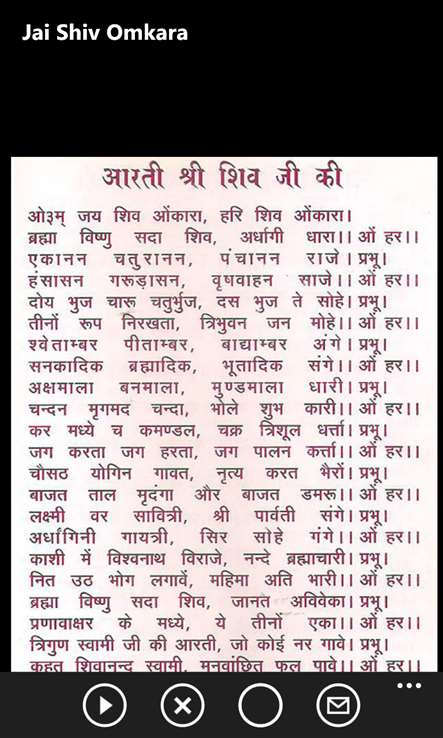 Jai Shiv Omkara
आरती श्री शिव जी की
ओ३म् जय शिव ओंकारा, हरि शिव ओंकारा।
ब्रह्मा विष्णु सदा शिव, अर्धागी धारा।। ओं हर।।
एकानन चतुरानन, पंचानन राजे। प्रभू।
हंसासन गरूड़ासन, वृषवाहन साजे।। ओं हर।।
दोय भुज चारू चतुर्भुज, दस भुज ते सोहे। प्रभू।
तीनों रूप निरखता, त्रिभुवन जन मोहे।। ओं हर।।
श्वेताम्बर पीताम्बर, बाद्याम्बर अंगे। प्रभू।
सनकादिक ब्रह्मादिक, भूतादिक संगे।। ओं हर।।
अक्षमाला बनमाला, मुण्डमाला धारी। प्रभू।
चन्दन मृगमद चन्दा, भोले शुभ कारी।। ओं हर।।
कर मध्ये च कमण्डल, चक्र त्रिशूल धर्त्ता। प्रभू।
जग करता जग हरता, जग पालन कर्त्ता।। ओं हर।।
चौसठ योगिन गावत, नृत्य करत भैरों। प्रभू।
बाजत ताल मृदंगा और बाजत डमरू।। ओं हर।।
लक्ष्मी वर सावित्री, श्री पार्वती संगे। प्रभू।
अर्धांगिनी गायत्री, सिर सोहे गंगे।। ओं हर।।
काशी में विश्वनाथ विराजे, नन्दे ब्रह्माचारी। प्रभू।
नित उठ भोग लगावें, महिमा अति भारी।। ओं हर।।
ब्रह्मा विष्णु सदा शिव, जानत अविवेका। प्रभू।
प्रणावाक्षर के मध्ये, ये तीनों एका।। ओं हर।।
त्रिगुण स्वामी जी की आरती, जो कोई नर गावे। प्रभू।
कहत शिवानन्द स्वामी, मनवांछित फल पावे।। ओं हर।।